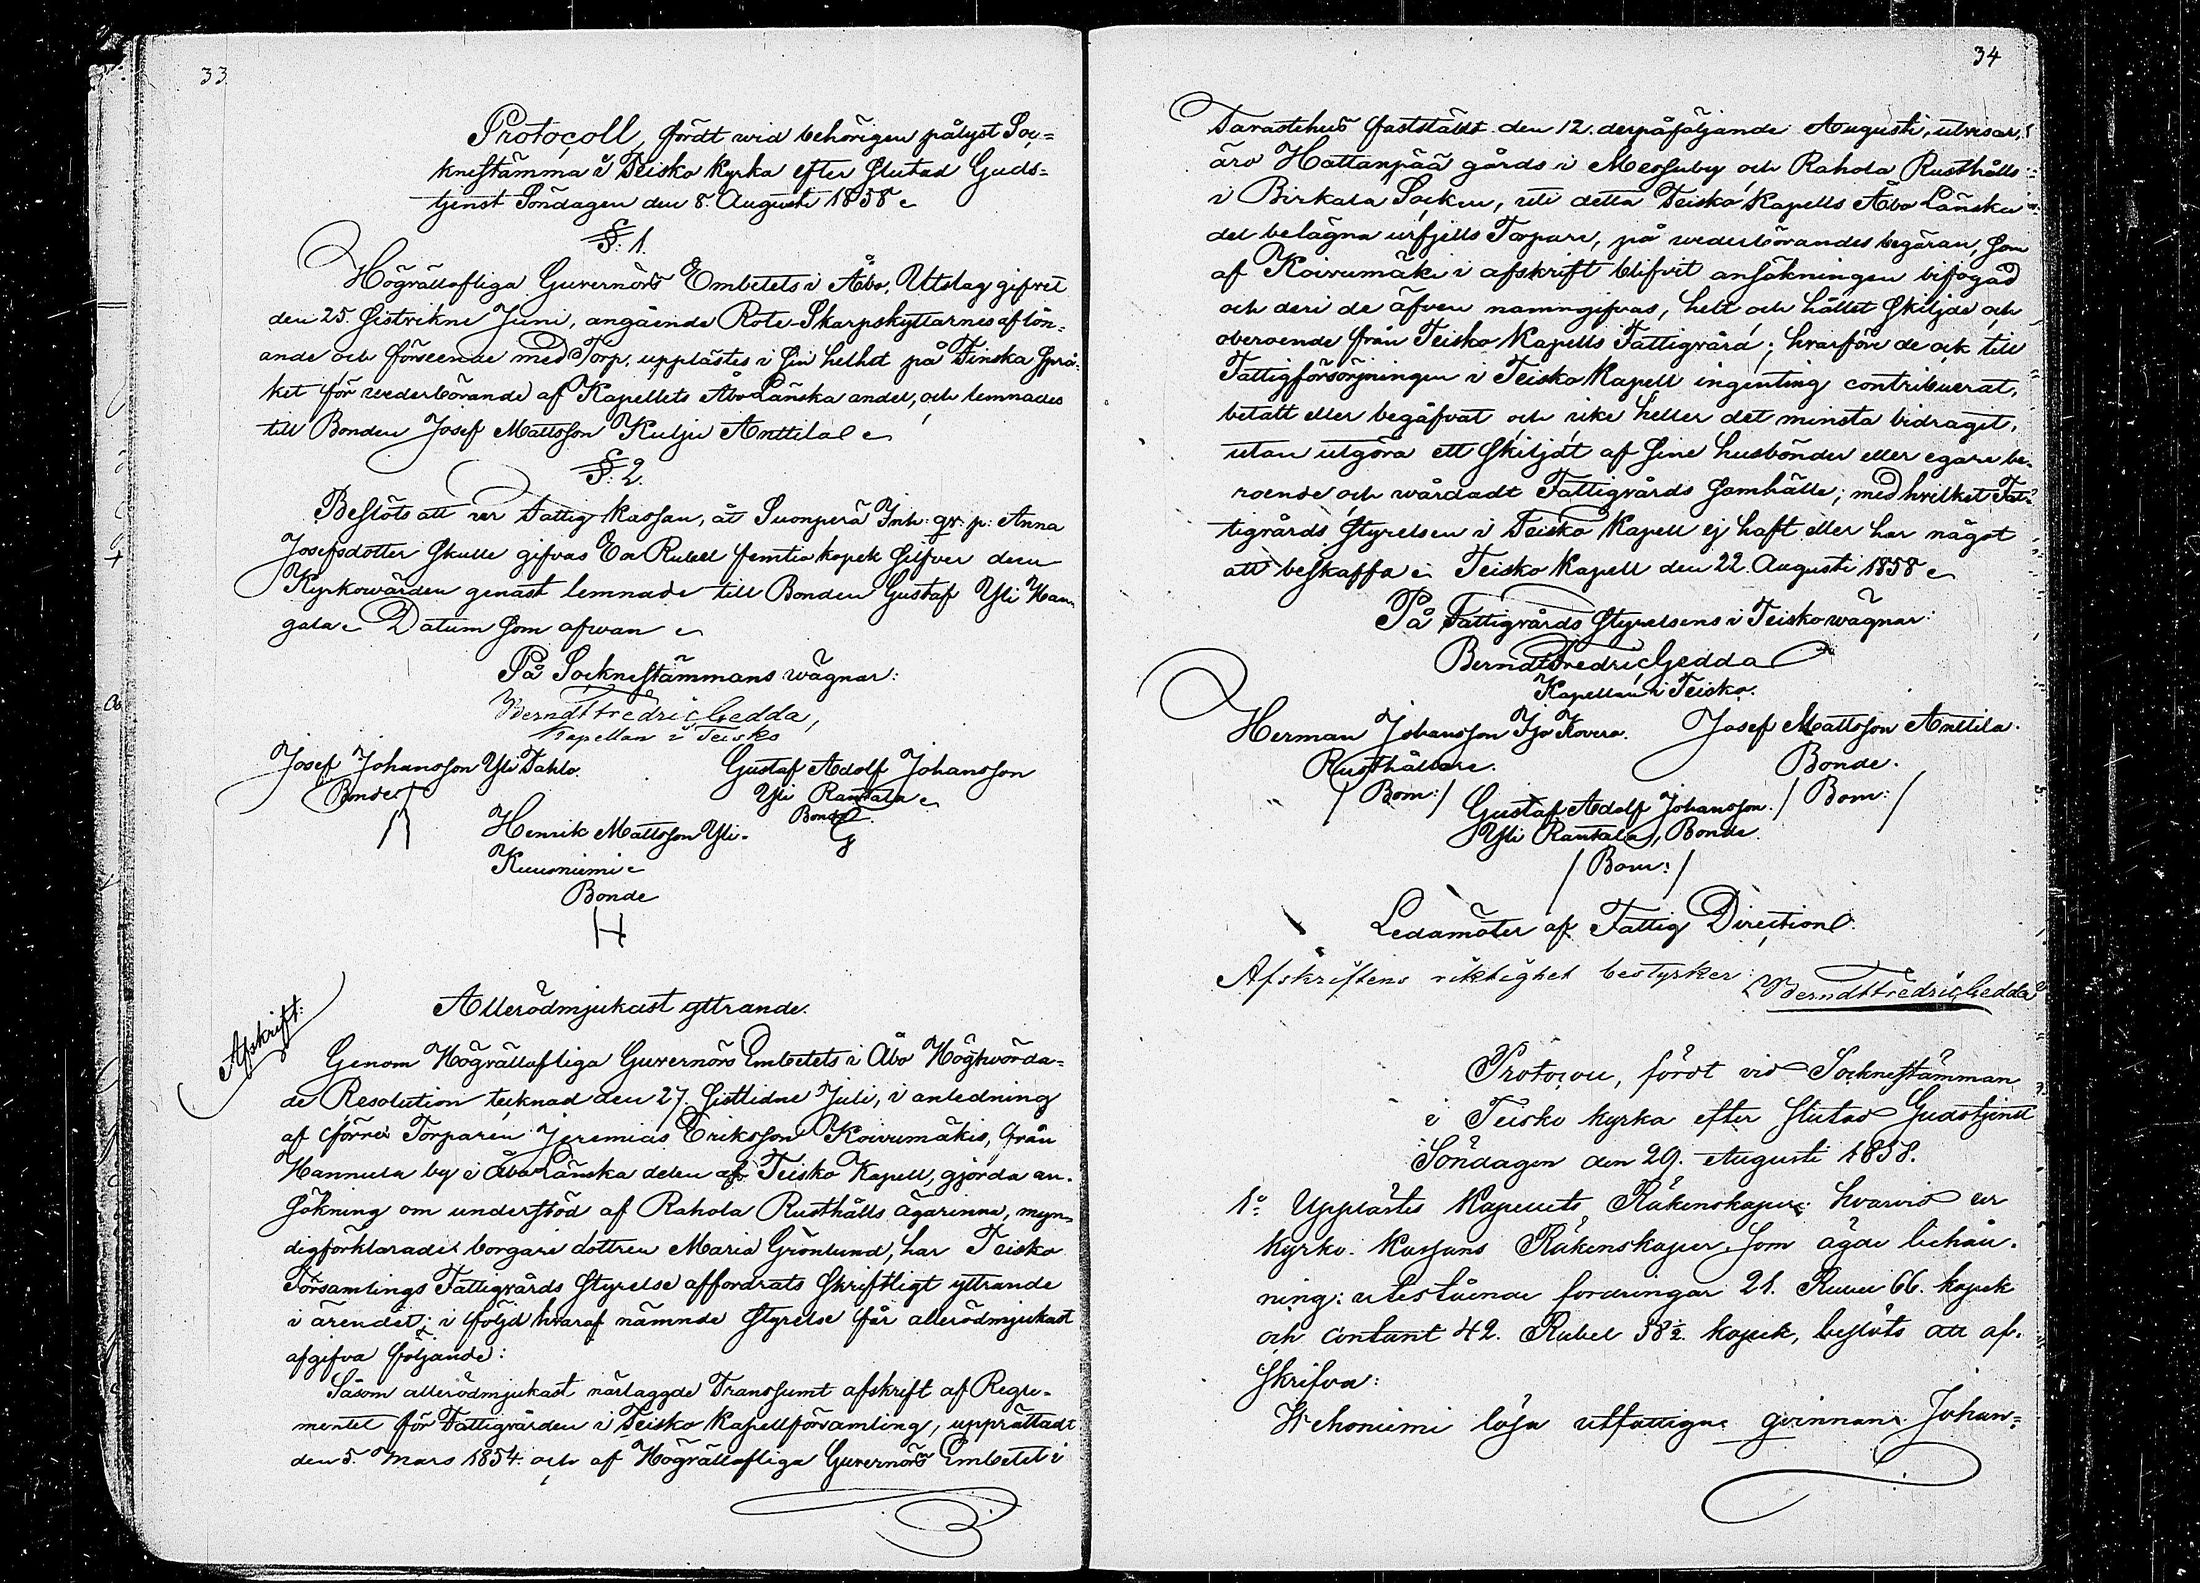 33
Protocoll, fördt wid behörigen pålyst Soc=
knestämma i Teisko kyrka efter slutad Guds=
tjenst Söndagen den 8. Augusti 1858
§. 1.
Högvällofliga Guvernörs Embetets i Åbo, Utslag gifvit
den 25. sistvikne Juni, angående Rote-Skarpskyttarnes aflön=
ande och förseende med Torp, upplästes i sin helhet på Finska språ=
ket för wederbörande af Kapellets Åbo Länska andel, och lemnades
till Bonden Josef Mattsson Kulju Anttila
§. 2.
Beslöts att ur Fattig kassan, åt Suonperä Inh: qv: p: Anna
Josefsdotter skulle gifvas En Rubel femtio kopek silfver dem
Kyrkowärden genast lemnade till Bonden Gustaf Yli Han
gala Datum som ofwan
På Sockneståmmans wägnar:
Berndt Fredric Gedda,
Kapellan i Teisko
Josef Johansson Yli Pahlo. Gustaf Adolf Johansson
Bonde Yli Rantala
Henrik Mattsson Yli- Bonde
Kuusniemi
Bonde
H
Afskrift:
Allerödmjukast yttrande.
Genom Högvällofliga Guvernörs Embetets i Åbo Höghvörda-
de Resolution tecknad den 27. sistlidne Juli, i anledning
af förre Torparen Jeremias Eriksson Koivumäkis, från
Hannula by i Åbo Länska delen af Teisko Kapell, gjorda an-
sökning om understöd af Rahola Rusthålls ägarinna, myn-
digförklarade borgare dottren Maria Grönlund, har Teisko
Församlings Fattigvårds Styrelse affordrats skriftligt yttrande
i ärendet; i följd hvaraf nämnde Styrelse får allerödmjukast
afgifva följande:
Såsom allerödmjukast närlaggde Transsumt afskrift af Regle-
mentet för Fattigvården i Teisko Kapellförsamling, upprättadt
den 5. Mars 1854. och af Högvällofliga Guvernörs Embetet i
34
Tavastehus faststäldt den 12. derpåföljande Augusti, utvisar,
äro Hattanpää gårds i Messuby och Rahola Rusthålls
i Birkala Socken, uti detta Teisko Kapells Åbo Länska
del belägna urfjells Torpare, på wederbörandes begäran, som
af Koivumäki i afskrift blifvit ansökningen bifogad
och deri de äfven namngifvas, helt och hållet skiljde och
oberoende från Teisko Kapells Fattigvård; hvarföre de ock till
Fattigförsörjningen i Teisko Kapell ingenting contribuerat,
betalt eller begåfvat och icke heller det minsta bidragit,
utan utgöra ett skiljdt af sine husbönder eller egare be-
roende och vårdadt Fattigvårds samhälle; med hvilket Fat-
tigvårds Styrelsen i Teisko Kapell ej haft eller har något
att beskaffa Teisko Kapell den 22. Augusti 1858
På Fattigvårds Styrelsens i Teisko wägnar:
Berndt Fredric Gedda
Kapellan i Teisko.
Herman Johansson Iso Kovero. Josef Mattsson Anttila.
Rusthållare. Bonde.
/ Bom: / / Bom: /
Gustaf Adolf Johansson
Yli Rantala, Bonde
/ Bom: /
Ledamöter af Fattig Direction.
Afskriftens riktighet bestyrker: Berndt Fredric Gedda
Protocoll, fördt vid Socknestämman
i Teisko kyrka efter slutad Gudstjenst
Söndagen den 29. Augusti 1858.
1o Upplästes Kapellets Räkenskaper: hvarvid ur
Kyrko-Kassans Räkenskaper, som ägde behåll-
ning: utestående fordringar 21. Rubel 66. kopek
och contant 42. Rubel 58½ kopek, beslöts att af-
skrifva:
lösa utfattiga qvinnan Johan=